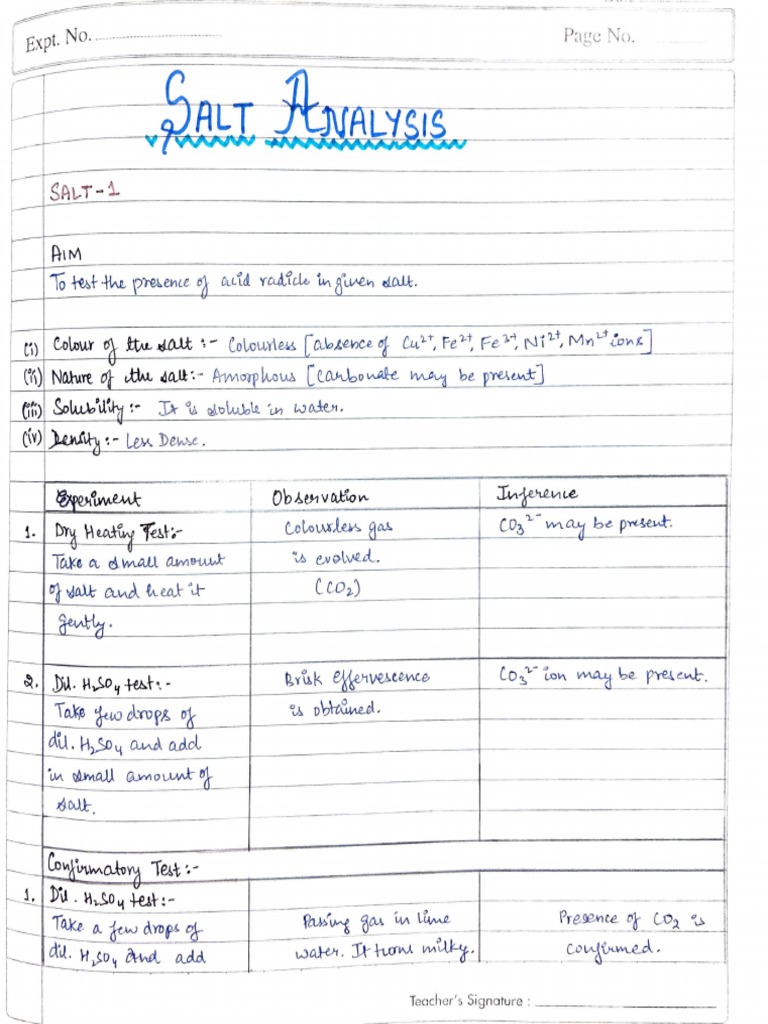 Expt. No.
Page No.
SALT ANALYSIS
SALT-1
AIM
To test the presence of acid radicle in given salt.
(i) Colour of the salt :- Colourless [absence of Cu²⁺, Fe²⁺, Fe³⁺, Ni²⁺, Mn²⁺ ions]
(ii) Nature of the salt:- Amorphous [carbonate may be present]
(iii) Solubility:- It is soluble in water.
(iv) Density:- Less Dense.
Experiment Observation Inference
1. Dry Heating Test:- Colourless gas CO₃²⁻ may be present.
Take a small amount is evolved.
of salt and heat it (CO₂)
gently.
2. Dil. H₂SO₄ test:- Brisk effervescence CO₃²⁻ ion may be present.
Take few drops of is obtained.
dil. H₂SO₄ and add
in small amount of
salt.
Confirmatory Test:-
1. Dil. H₂SO₄ test:-
Take a few drops of Passing gas in lime Presence of CO₂ is
dil. H₂SO₄ and add water. It turns milky. confirmed.
Teacher's Signature :